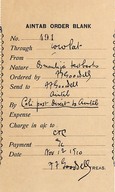 AINTAB ORDER BLANK
No. 191
Through
From
Nature
Ordered by FFGoodsell
Send to FFGoodsell
Aintab
By Col. post direct to Aintab
Expense
Charge in a/c to
Payment
Date Nov 12 1910
FFGoodsell TREAS.